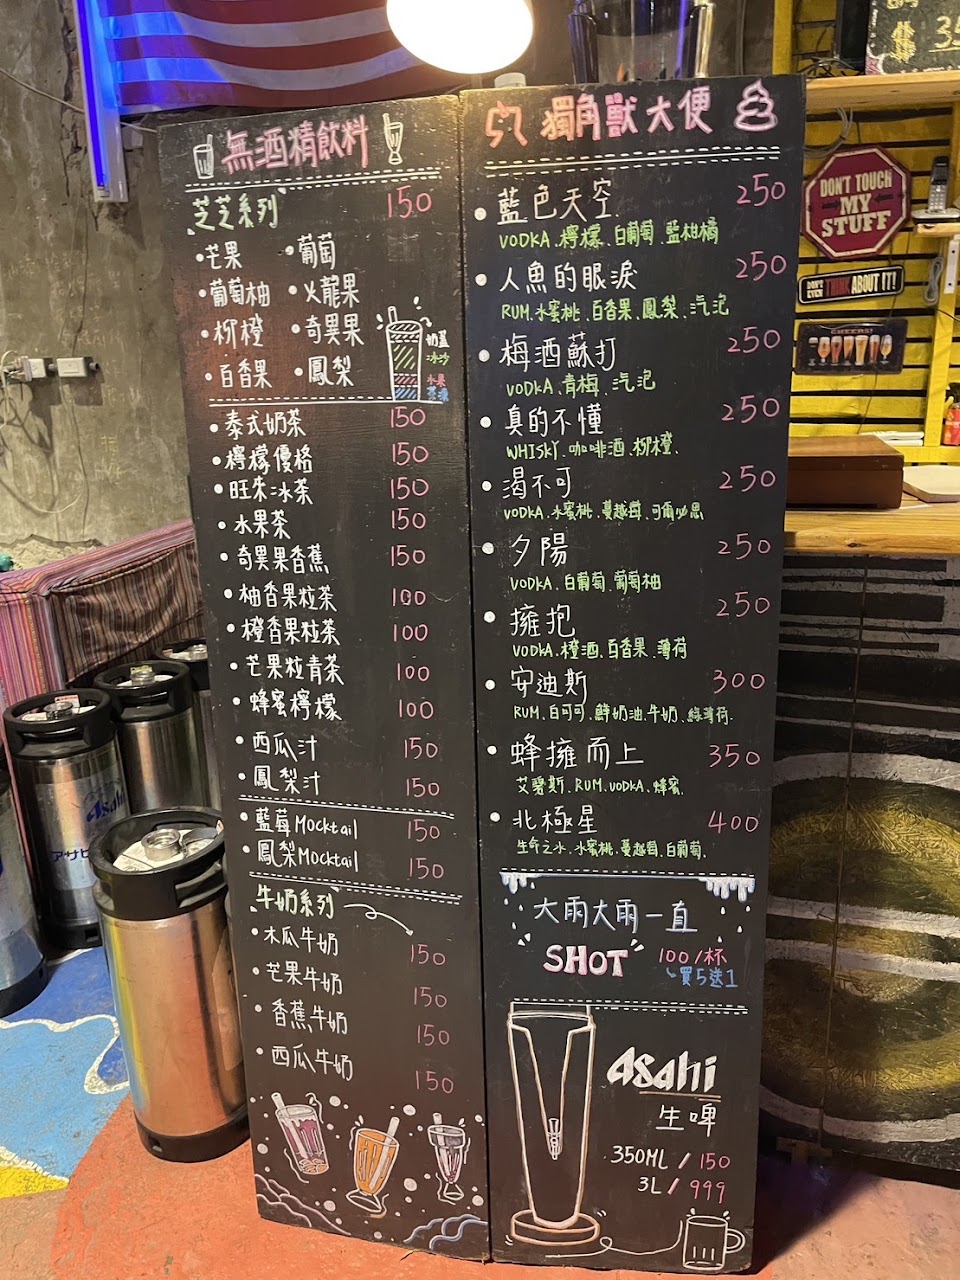 無酒精飲料
芝芝系列 150
•芒果 •葡萄
•葡萄柚 •火龍果
•柳橙 •奇異果
•百香果 •鳳梨
奶蓋
冰沙
水果
茶凍
•泰式奶茶 150
•檸檬優格 150
•旺來冰茶 150
•水果茶 150
•奇異果香蕉 150
•柚香果粒茶 100
•橙香果粒茶 100
•芒果粒青茶 100
•蜂蜜檸檬 100
•西瓜汁 150
•鳳梨汁 150
•藍莓Mocktail 150
•鳳梨Mocktail 150
牛奶系列
•木瓜牛奶 150
•芒果牛奶 150
•香蕉牛奶 150
•西瓜牛奶 150
獨角獸大便
•藍色天空 250
VODKA、檸檬、白葡萄、藍柑橘
•人魚的眼淚 250
RUM、水蜜桃、百香果、鳳梨、汽泡
•梅酒蘇打 250
VODKA、青梅、汽泡
•真的不懂 250
WHISKY、咖啡酒、柳橙、
•渴不可 250
VODKA、水蜜桃、蔓越莓、可爾必思
•夕陽 250
VODKA、白葡萄、葡萄柚
•擁抱 250
VODKA、橙酒、百香果、薄荷
•安迪斯 300
RUM、白可可、鮮奶油、牛奶、綠薄荷
•蜂擁而上 350
艾碧斯、RUM、VODKA、蜂蜜
•北極星 400
生命之水、水蜜桃、蔓越莓、白葡萄、
大雨大雨一直
SHOT 100/杯
買5送1
Asahi
生啤
350ML / 150
3L / 999
DON'T TOUCH
MY
STUFF
DON'T EVEN THINK ABOUT IT!
CHEERS!
$ 35
Asahi
アサヒ